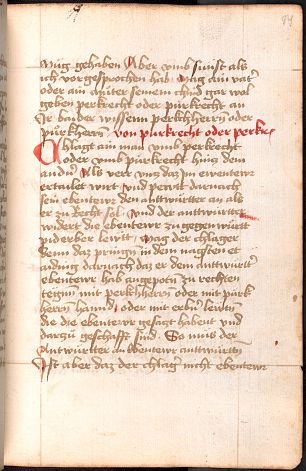 mug gehaben Aber vmb sunst als
ich vorgesprochen hab Mag ain vater
oder ain mueter seinem chind gar wol
geben perkrecht oder purkrecht an
Ir baider wissenn perkhherrn oder
purkherrn von purkrecht oder perkr
Chlagt ain man vmb perkrecht
oder vmb purkrecht hincz dem
andern Als verr vnd daz im ebentewr
ertailet wirt Vnd peratt darnach
sein ebentewr den antwurtter an als
er ze Recht sol Vnd der antwurtter
widert die ebentewr zu gegenwurt
piderber lewtt Mag der chlager
denn daz pringen in den nagsten
darnach daz er dem antwurtt
ebentewr hab angepotn zu rechten
tegen mit perkhherrn oder mit purk
herrn hannd oder mit erbern lewtn
die die ebentewr gesagt habent vnd
darzu geschafft sind So mus der
Antwurtter an ebentewr antwurttn
Ist aber daz der chlager nicht ebentewr